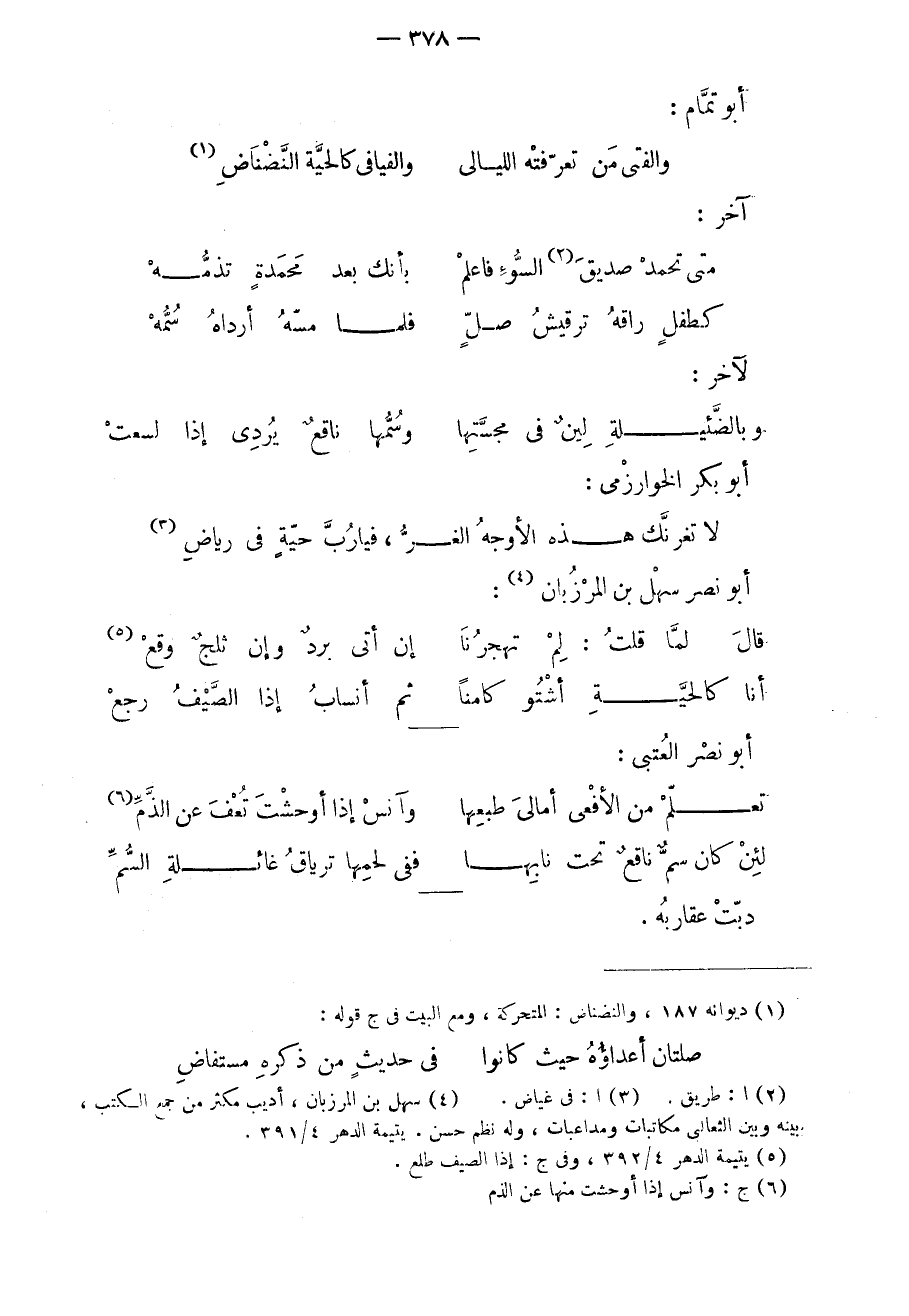 — ٣٧٨ —
أبو تمَّام :
والفتى مَن تعرّفتْه الليـالى والفيافى كالحيَّة النَّضْنَاضِ (١)
آخر :
متى تحمدْ صديقَ (٢) السوُّءِ فاعلمْ بأنك بعد مَحمَدةٍ تذمُّـــهْ
كطفلٍ راقهُ ترقيشُ صـلٍّ فلمـــا مسّهُ أرداهُ سُمُّهْ
لآخر :
وبالضَّئيـــلةِ لِينٌ فى مجسَّتِها وسُمُّها ناقعٌ يُردِى إذا لسعتْ
أبو بكر الخوارزْمى :
لا تغرنَّك هـــذه الأوجهُ الغــرُّ ، فيارُبَّ حيّةٍ فى رياضِ (٣)
أبو نصر سهْل بن المرْزُبان (٤) :
قالَ لمَّا قلتُ : لِمْ تهجرُنَا إن أتى بردٌ وإن ثلجٌ وقعْ (٥)
أنا كالحيَّـــةِ أشْتُو كامناً ثم أنسابُ إذا الصَّيْفُ رجعْ
أبو نصْر العُتبى :
تعـــلّمْ من الأفْعى أمالىَ طبعِها وآنسْ إذا أوحشْتَ تُعْفَ عن الذَّمِّ (٦)
لئِنْ كان سمٌّ ناقعٌ تحت نابِهـــا ففى لحمِها ترياقُ غائـــلةِ السُّمِّ
دبّتْ عقاربُه .
(١) ديوانه ١٨٧ ، والنضناض : المتحركة ، ومع البيت فى ج قوله :
صلتان أعداؤهُ حيث كانوا فى حديثٍ من ذكرهِ مستفاضِ
(٢) ا : طريق . (٣) ا : فى غياض . (٤) سهل بن المرزبان ، أديب مكثر من جمع الكتب ،
بينه وبين الثعالبى مكاتبات ومداعبات ، وله نظم حسن . يتيمة الدهر ٤/٣٩١ .
(٥) يتيمة الدهر ٤/٣٩٢ ، وفى ج : إذا الصيف طلع .
(٦) ج : وآنس إذا أوحشت منها عن الذم